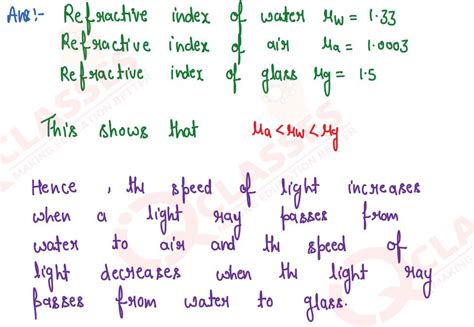 Ans:- Refractive index of water μw = 1.33
Refractive index of air μa = 1.0003
Refractive index of glass μg = 1.5
This shows that μa < μw < μg
Hence, the speed of light increases
when a light ray passes from
water to air and the speed of
light decreases when the light ray
passes from water to glass.
CLASSES
MAKING EDUCATION BETTER